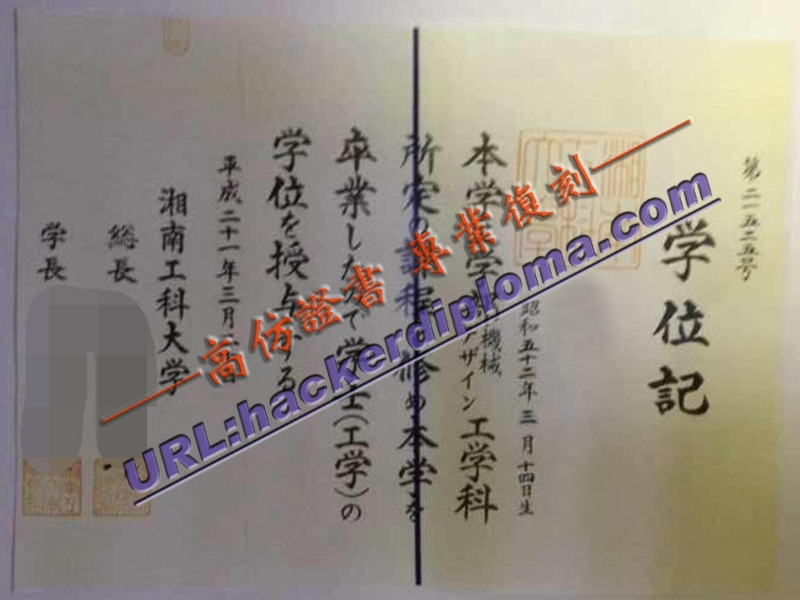 第二一五二五号
学位記
昭和五十二年三月十四日生
本学工学部機械デザイン工学科
所定の課程を修め本学を
卒業したので学士(工学)の
学位を授与する
平成二十一年三月 日
湘南工科大学
総長
学長
——高仿證書 專業復刻——
URL:hackerdiploma.com